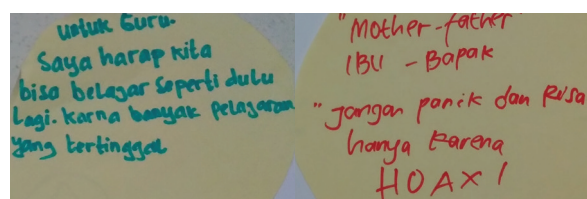 untuk Guru.
Saya harap kita
bisa belajar seperti dulu
Lagi. karna banyak pelajaran
yang tertinggal
"Mother-father"
IBU - BAPAK
"Jangan panik dan Risa
hanya karena
HOAX!